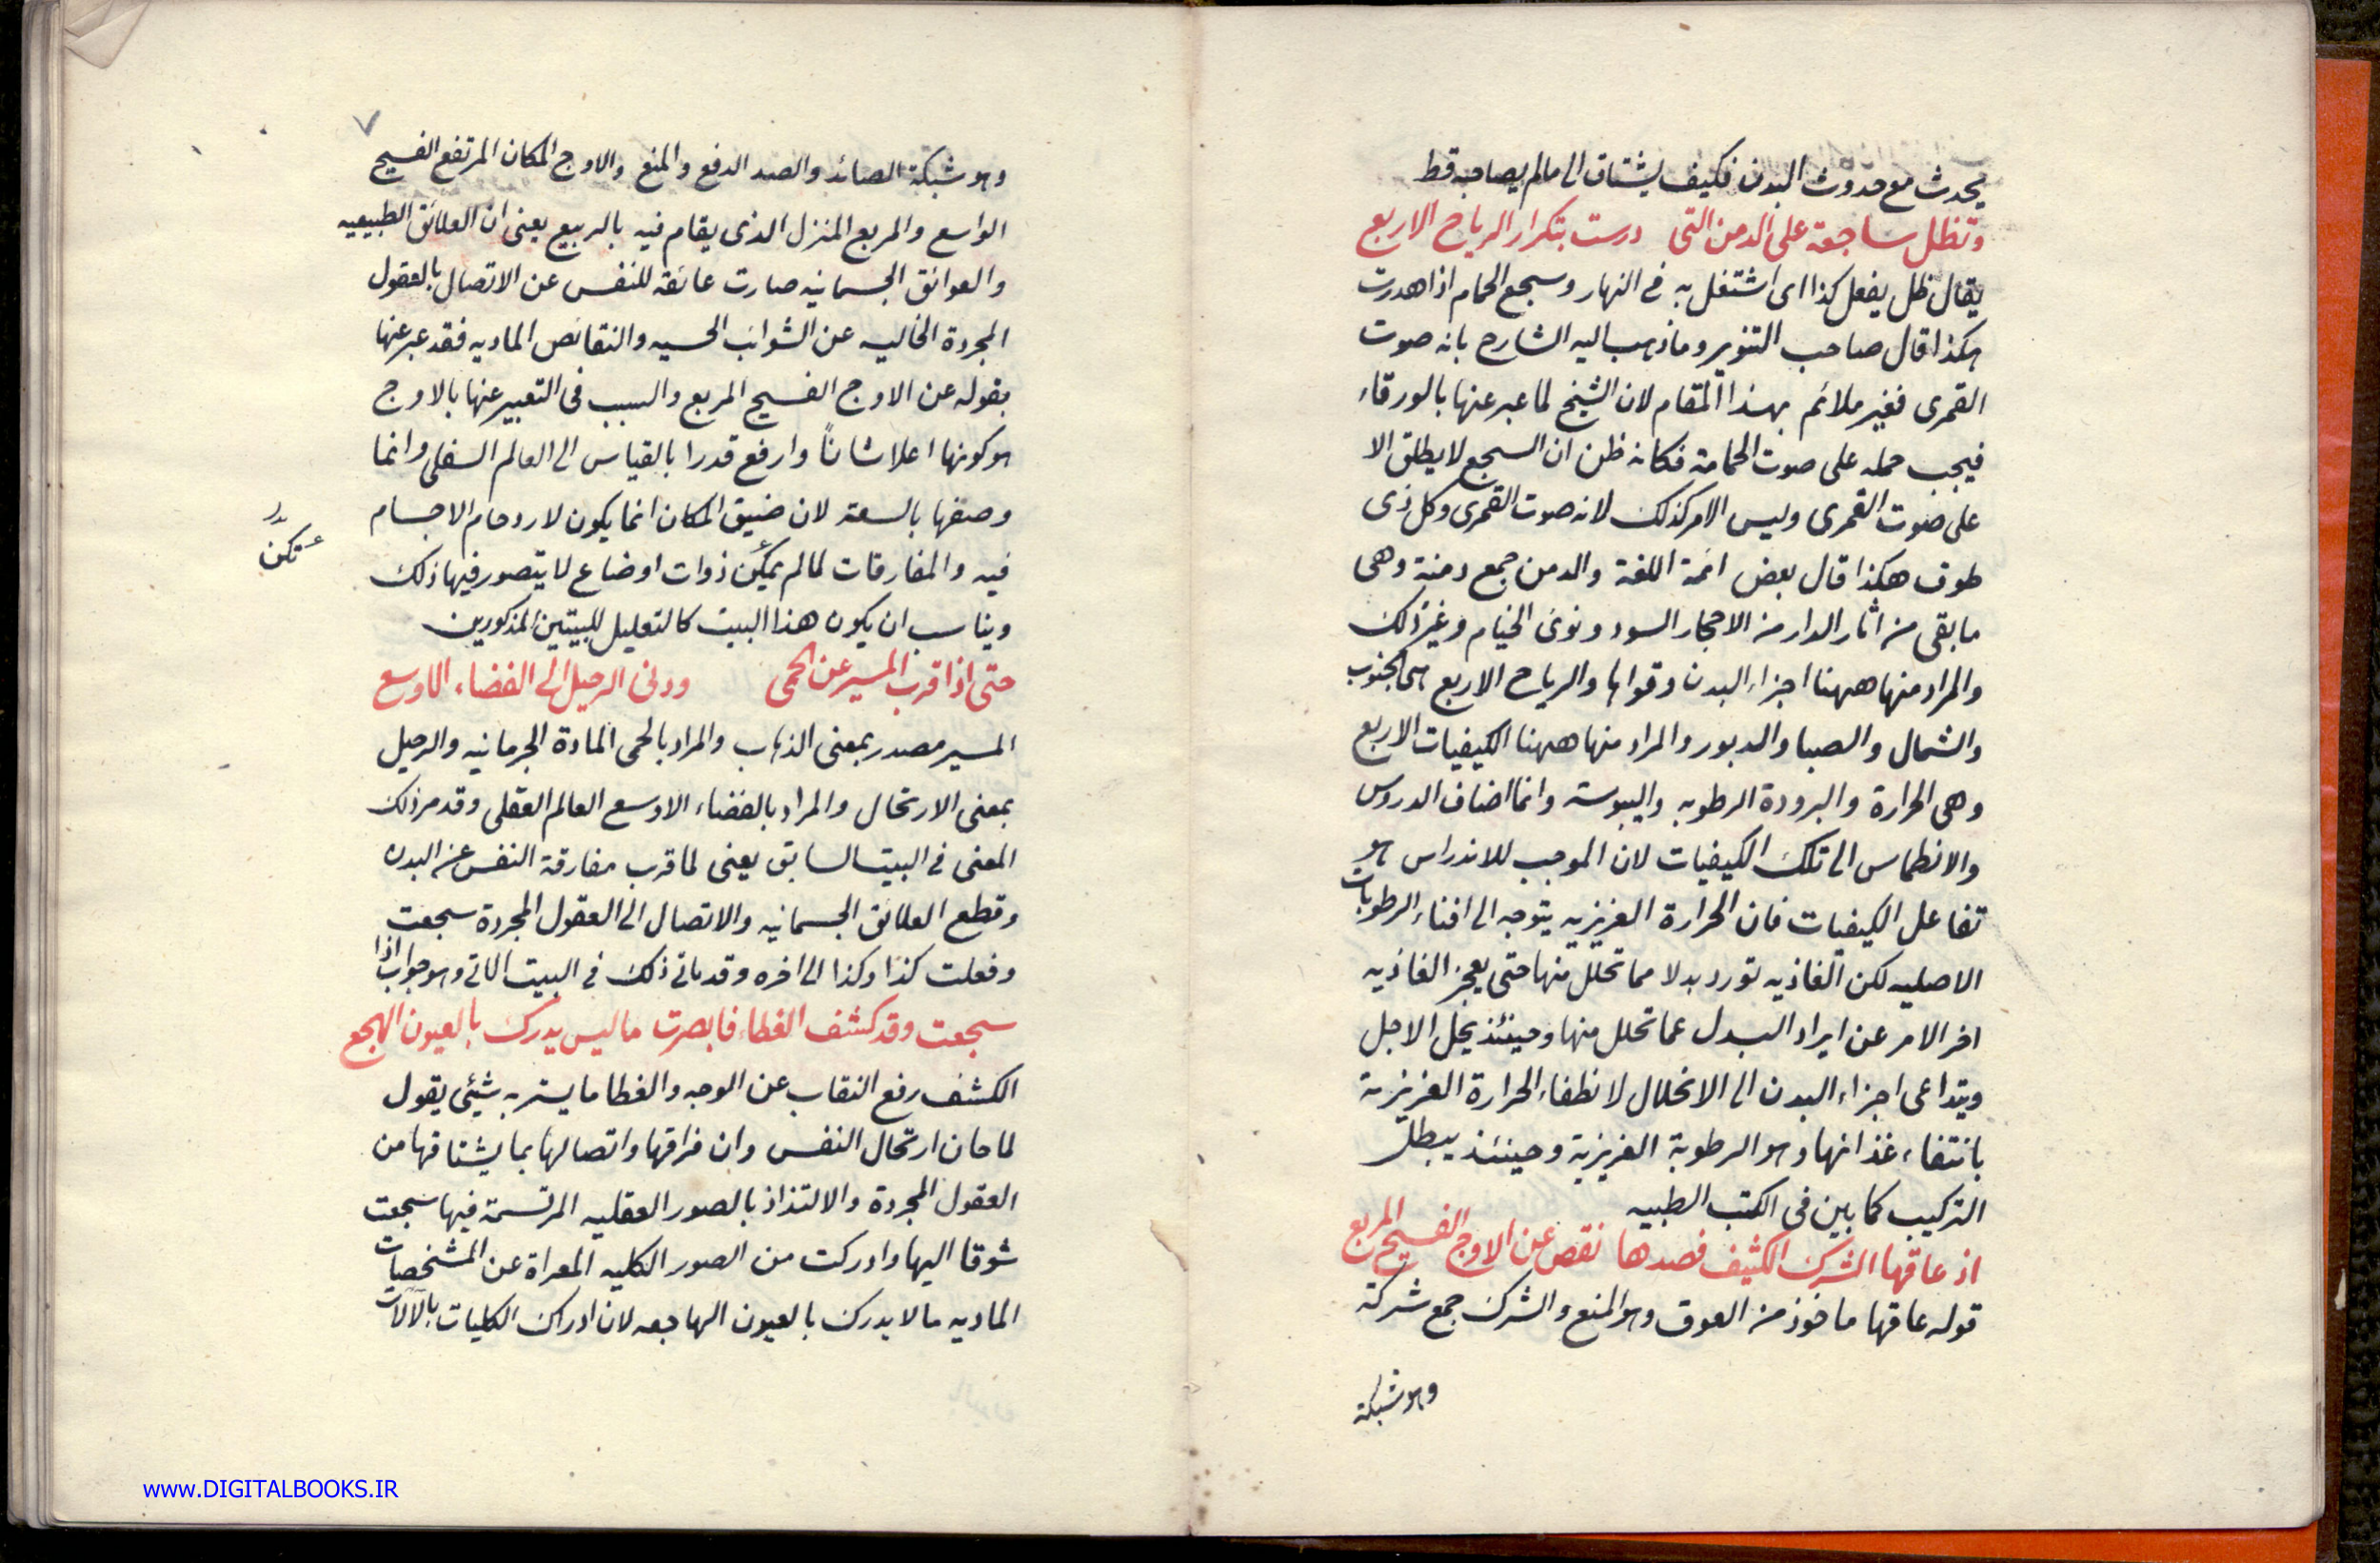 يحدث مع حدوث البدن فكيف يشتاق الى مالم يصاحبه قط
وتظل ساجعة على الدمن التى درست بتكرار الرياح الاربع
يقال ظل يفعل كذا اى اشتغل به فى النهار وسجع الحمام اذا هدرت
هكذا قال صاحب التنوير وما ذهب اليه الشارح بانه صوت
القمرى فغير ملائم بهذا المقام لان الشيخ لما عبر عنها بالورقاء
فيجب حمله على صوت الحمامة فكانه ظن ان السجع لا يطلق الا
على صوت القمرى وليس الامر كذلك لانه صوت القمرى وكل ذى
طوق هكذا قال بعض ائمة اللغة والدمن جمع دمنة وهى
ما بقى من اثار الدار من الاحجار السود ونوى الخيام وغير ذلك
والمراد منها ههنا اجزاء البدن وقواها والرياح الاربع هى الجنوب
والشمال والصبا والدبور والمراد منها ههنا الكيفيات الاربع
وهى الحرارة والبرودة الرطوبه واليبوسته وانما اضاف الدروس
والانطماس الى تلك الكيفيات لان الموجب للاندراس هو
تفاعل الكيفيات فان الحرارة الغريزيه يتوجه الى افناء الرطوبات
الاصليه لكن الغاذيه تورد بدلا مما تحلل منها حتى يعجز الغاذيه
اخر الامر عن ايراد البدل عما تحلل منها وحينئذ يحل الاجل
ويتداعى اجزاء البدن الى الانحلال لانطفاء الحرارة الغريزية
بانتفاء غذائها وهو الرطوبة الغريزية وحينئذ يبطل
التركيب كما بين فى الكتب الطبيه
اذ عاقها الشرك الكثيف فصدها نقص عن الاوج الفسيح المربع
قوله عاقها ماخوذ من العوق وهو المنع والشرك جمع شركة
وهو شبكة
٧
وهو شبكة الصائد والصد الدفع والمنع والاوج المكان المرتفع الفسيح
الواسع والمربع المنزل الذى يقام فيه بالربيع يعنى ان العلائق الطبيعيه
والعوائق الجسمانيه صارت عائقة للنفس عن الاتصال بالعقول
المجردة الخاليه عن الشوائب الحسيه والنقائص الماديه فقد عبر عنها
بقوله عن الاوج الفسيح المربع والسبب فى التعبير عنها بالاوج
هو كونها اعلا شانًا وارفع قدرا بالقياس الى العالم السفلى وانما
وصفها بالسعة لان ضيق المكان انما يكون لازدحام الاجسام
فيه والمفارقات لما لم يمكن ذوات اوضاع لا يتصور فيها ذلك
تكن
ويناسب ان يكون هذا البيت كالتعليل للبيتين المذكورين
حتى اذا قرب المسير عن الحمى ودنى الرحيل الى الفضاء الاوسع
المسير مصدر بمعنى الذهاب والمراد بالحمى المادة الجرمانيه والرحيل
بمعنى الارتحال والمراد بالفضاء الاوسع العالم العقلى وقد مر ذلك
المعنى فى البيت السابق يعنى لما قرب مفارقة النفس عن البدن
وقطع العلائق الجسمانيه والاتصال الى العقول المجردة سجعت
وفعلت كذا وكذا الى اخره وقد ياتى ذلك فى البيت الاتى وهو جواب اذا
سجعت وقد كشف الغطاء فابصرت ما ليس يدرك بالعيون الهجع
الكشف رفع النقاب عن الوجه والغطا ما يستر به شيئى يقول
لما حان ارتحال النفس وان فراقها واتصالها بما يشتاقها من
العقول المجردة والالتذاذ بالصور العقليه المرتسمة فيها سجعت
شوقا اليها وادركت من الصور الكليه المعراة عن المشخصات
الماديه ما لا يدرك بالعيون الهاجعه لان ادراك الكليات بالآلات
www.DIGITALBOOKS.IR